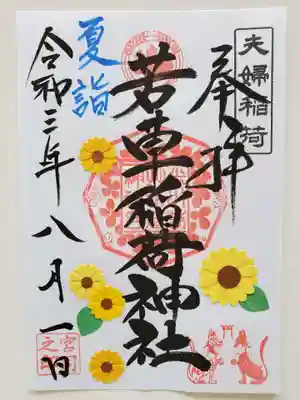 夫婦稲荷
奉拝
若車稲荷神社
夏詣
令和三年八月一日
宮司之印